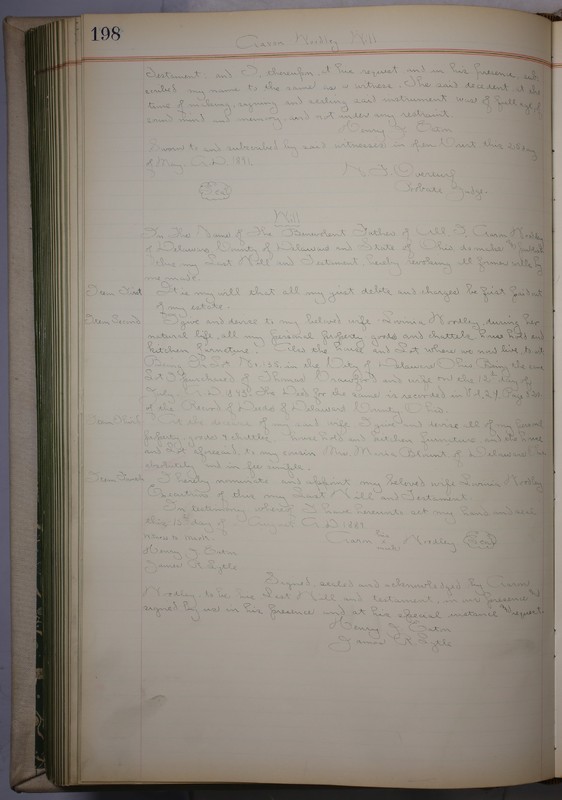 198
Aaron Woodley Will
testament, and I, thereupon, at his request and in his presence, sub-
scribed my name to the same as a witness. The said decedent at the
time of making, signing and sealing said instrument was of full age, of
sound mind and memory and not under any restraint.
Henry J. Eaton
Sworn to and subscribed by said witnesses in open Court, this day
of May A.D. 189
Probate Judge.
Seal
Will
In The Name of The Benevolent Father of All I, Aaron Woodley
of Delaware, County of Delaware and State of Ohio do make & publish
this my Last Will and Testament, hereby revoking all former wills by
me made.
Item First It is my will that all my just debts and charges be first paid out
of my estate.
Item Second I give and devise to my beloved wife Louisa Woodley during her
natural life, all my personal property goods and chattels, house hold and
kitchen furniture. Also the house and Lot where we now live to wit
Being In Lot No. 155, in the City of Delaware Ohio, Being the same
Lot I purchased of Thomas and wife on the 12th day of
A.D. the Deed for the same is recorded in Page
of the Record of Deeds of Delaware County Ohio.
Item Third At the decease of my said wife, I give and devise all of my personal
property, goods & chattels, household and kitchen furniture and the house
and Lot aforesaid, to my cousin Mrs. Maria of Delaware Ohio
absolutely and in fee simple.
Item Fourth I hereby nominate and appoint my beloved wife Louisa Woodley
Executrix of this my Last Will and Testament.
In testimony whereof I have hereunto set my hand and seal
this 12th day of August A.D. 1889
Aaron his mark Woodley Seal
Henry J. Eaton
James R. Lytle
Signed, sealed and acknowledged by Aaron
Woodley, to be his Last Will and testament, in our presence &
signed by us in his presence and at his special instance & request
Henry J. Eaton
James R. Lytle